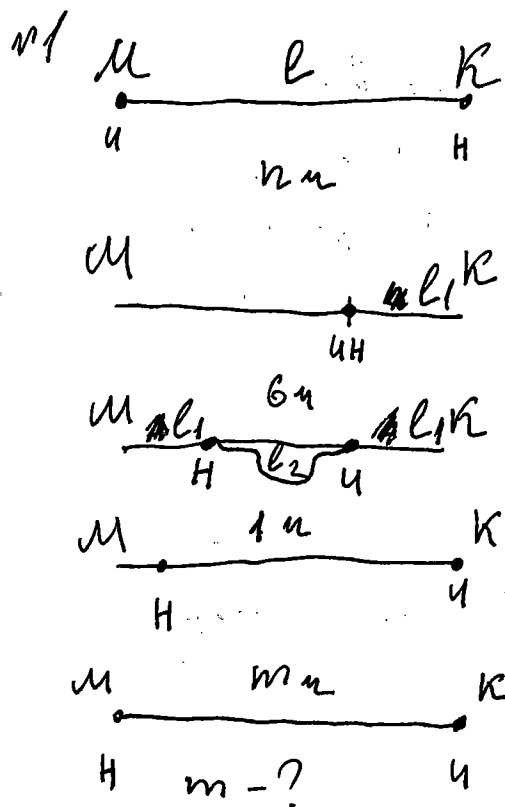 №1
М l К
Ч Н
n ч
М l₁ К
ЧН
6 ч
М l₁ l₁ К
Н l₂ Ч
М 1 ч К
Н Ч
М m ч К
Н Ч
m - ?